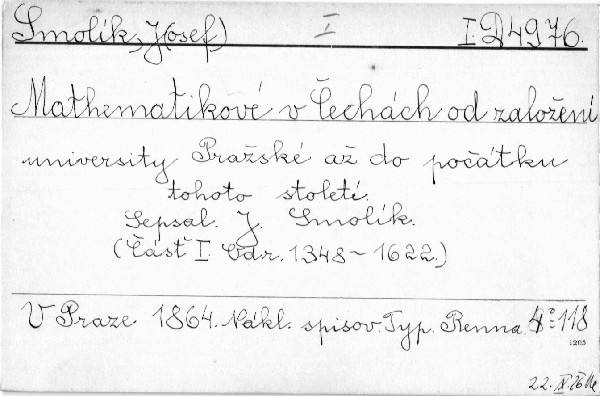 Smolík, J(osef) I I.D4976.
Mathematikové v Čechách od založení
university Pražské až do počátku
tohoto století.
Sepsal. J. Smolík.
(Část I. Odr. 1348-1622.)
V Praze 1864. Nákl. spisov. Typ. Renna 4° 118
1205
22. IX. 26